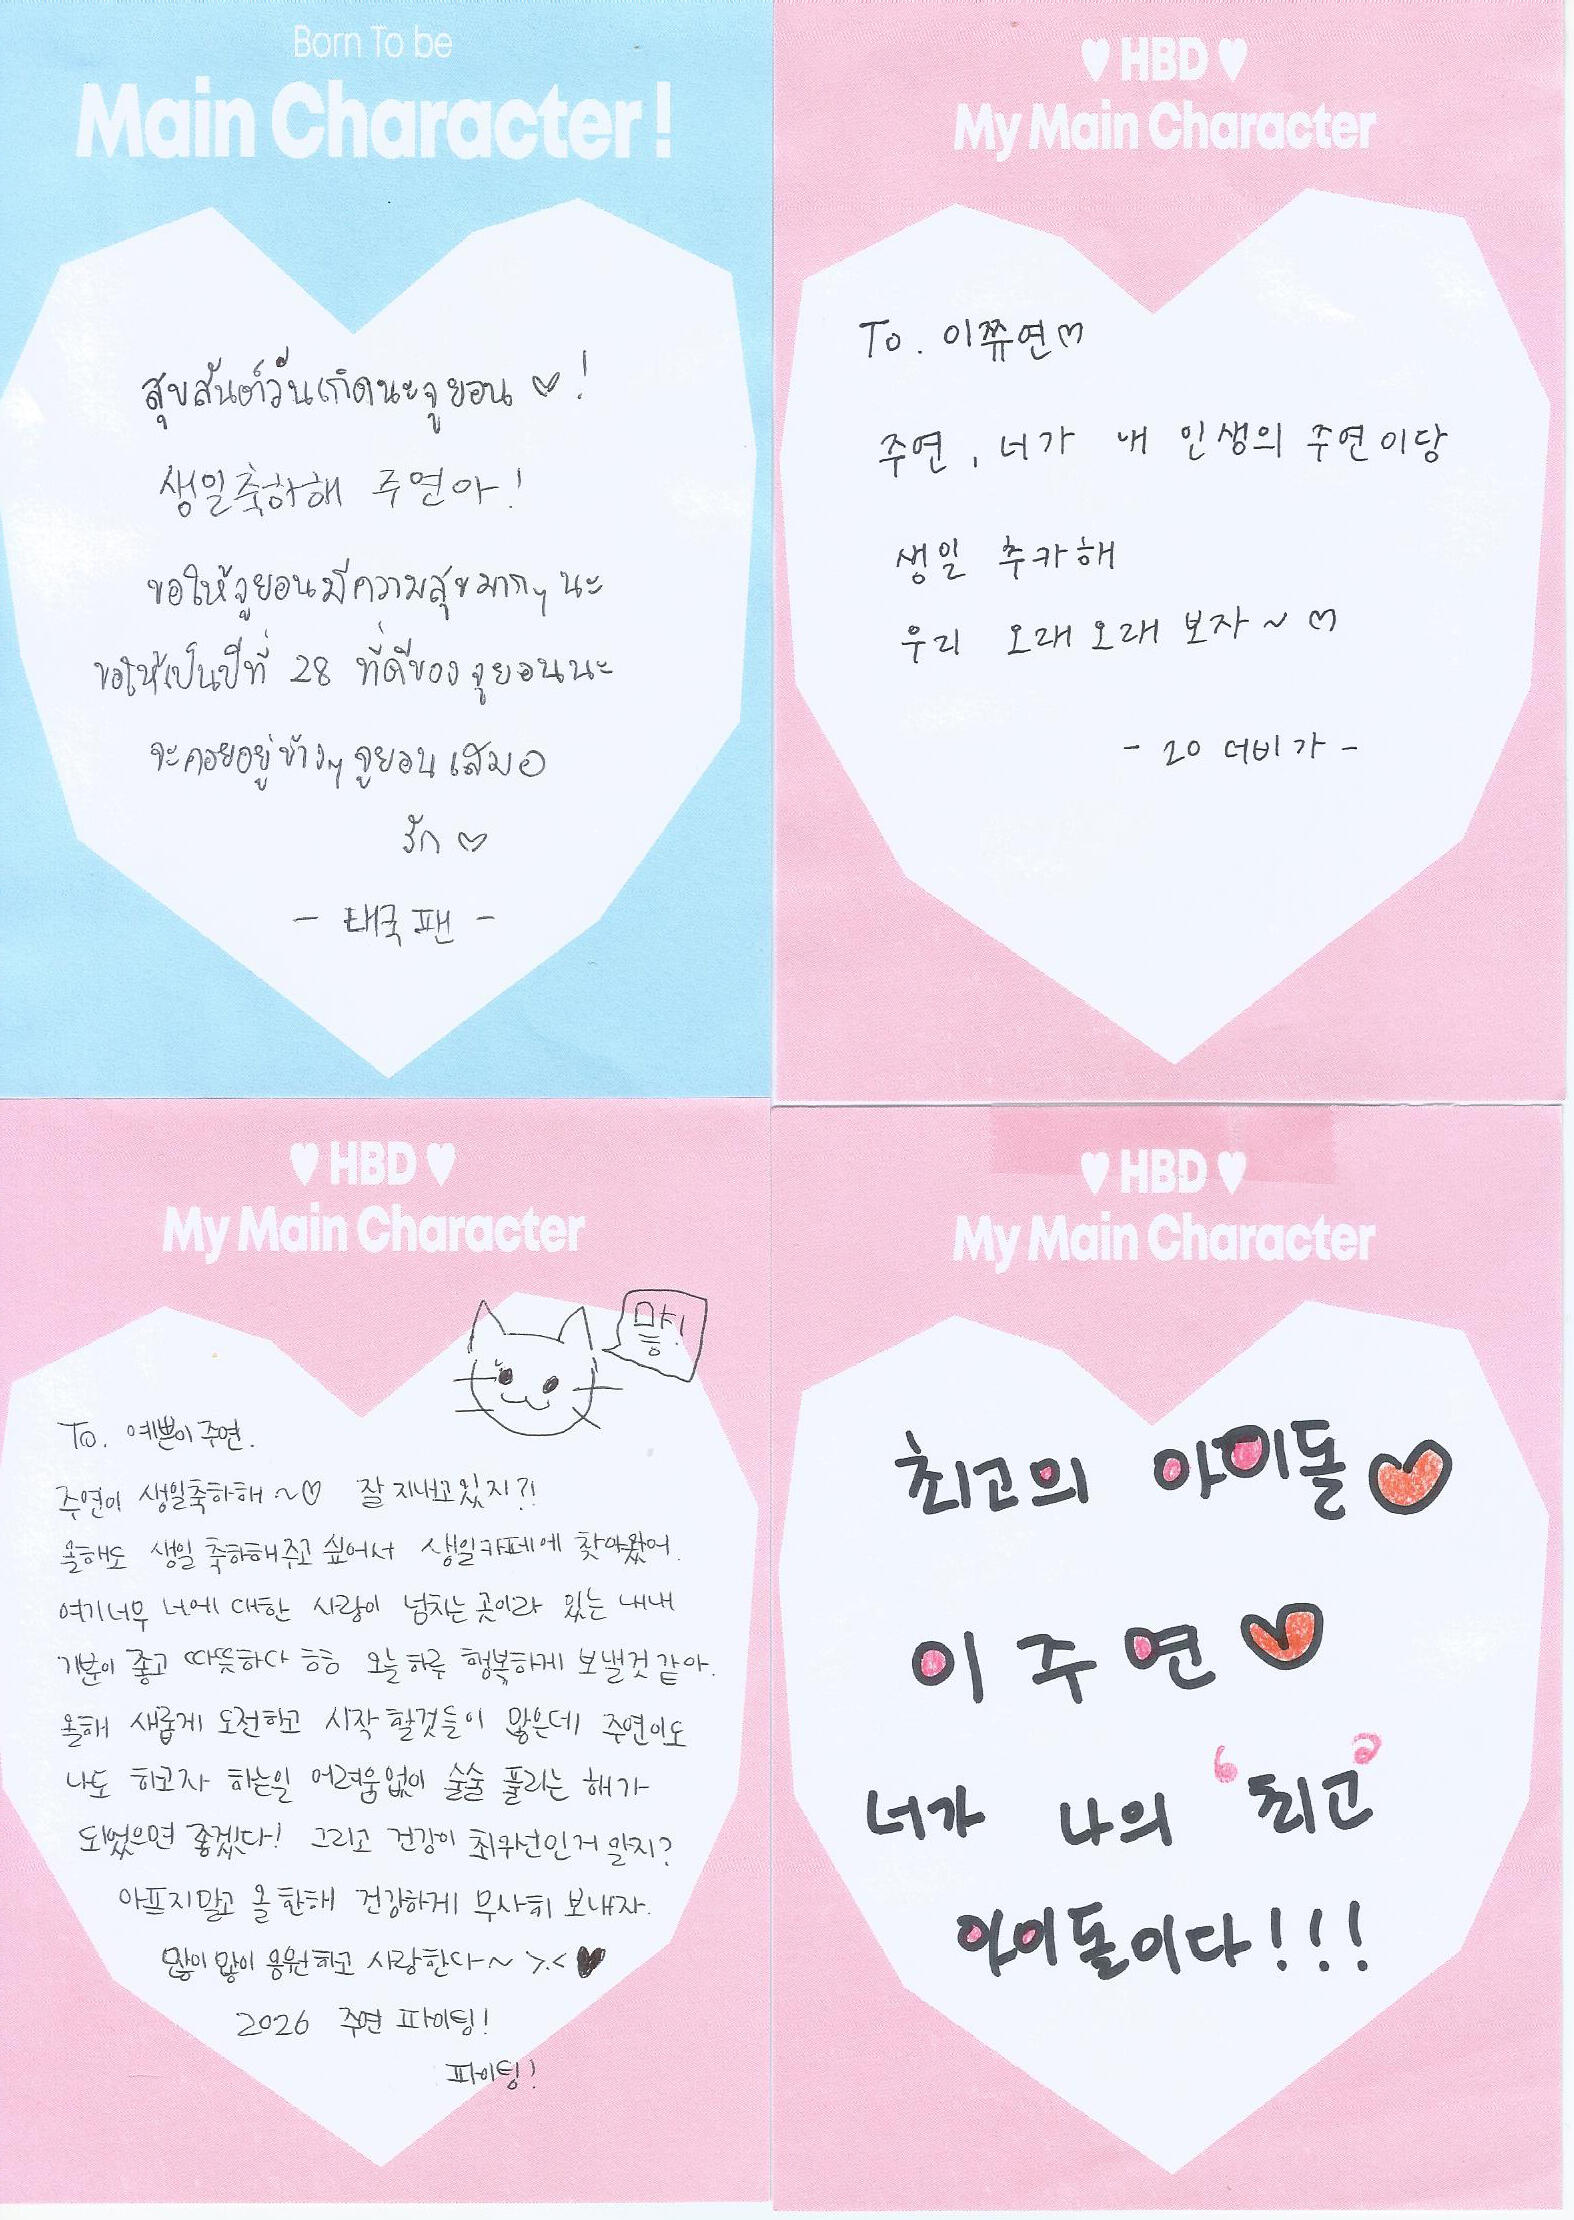 Born To be
Main Character!
สุขสันต์วันเกิดนะจูยอน ♡!
생일축하해 주연아!
ขอให้จูยอนมีความสุขมากๆ นะ
ขอให้เป็นปีที่ 28 ที่ดีของจูยอนนะ
จะคอยอยู่ข้างๆ จูยอนเสมอ
รัก ♡
- 태국팬 -
♥ HBD ♥
My Main Character
To. 이쮸연♡
주연, 너가 내 인생의 주연이당
생일 추카해
우리 오래오래 보자~♡
- 20 더비가 -
♥ HBD ♥
My Main Character
To. 예쁜이 주연.
주연이 생일축하해~♡ 잘 지내고있지?!
올해도 생일 축하해주고 싶어서 생일카페에 찾아왔어.
여기너무 너에 대한 사랑이 넘치는 곳이라 있는 내내
기분이 좋고 따뜻하다 ㅎㅎ 오늘하루 행복하게 보낼것 같아.
올해 새롭게 도전하고 시작할것들이 많은데 주연이도
나도 하고자 하는일 어려움없이 술술 풀리는 해가
되었으면 좋겠다! 그리고 건강이 최우선인거 알지?
아프지말고 올 한해 건강하게 무사히 보내자.
많이많이 응원하고 사랑한다~ >.<♥
2026 주연 파이팅!
파이팅!
♥ HBD ♥
My Main Character
최고의 아이돌♥
이주연♥
너가 나의 '최고'
아이돌이다!!!